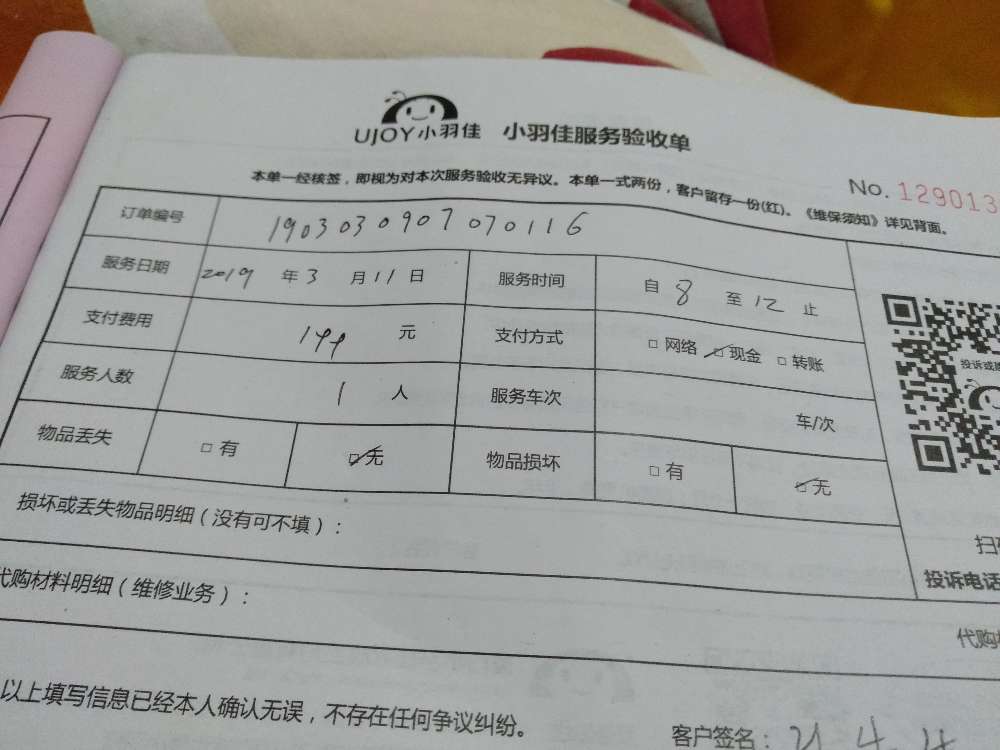 UJOY小羽佳 小羽佳服务验收单
本单一经核签，即视为对本次服务验收无异议。本单一式两份，客户留存一份(红)。《维保须知》详见背面。
No. 129013
订单编号 1903030907070116
服务日期 2019 年 3 月 11 日 服务时间 自 8 至 12 止
支付费用 199 元 支付方式 □ 网络 ☑ 现金 □ 转账
服务人数 1 人 服务车次 车/次
物品丢失 □ 有 ☑ 无 物品损坏 □ 有 ☑ 无
投诉或
损坏或丢失物品明细（没有可不填）：
扫
投诉电话
代购材料明细（维修业务）：
代购
以上填写信息已经本人确认无误，不存在任何争议纠纷。
客户签名：